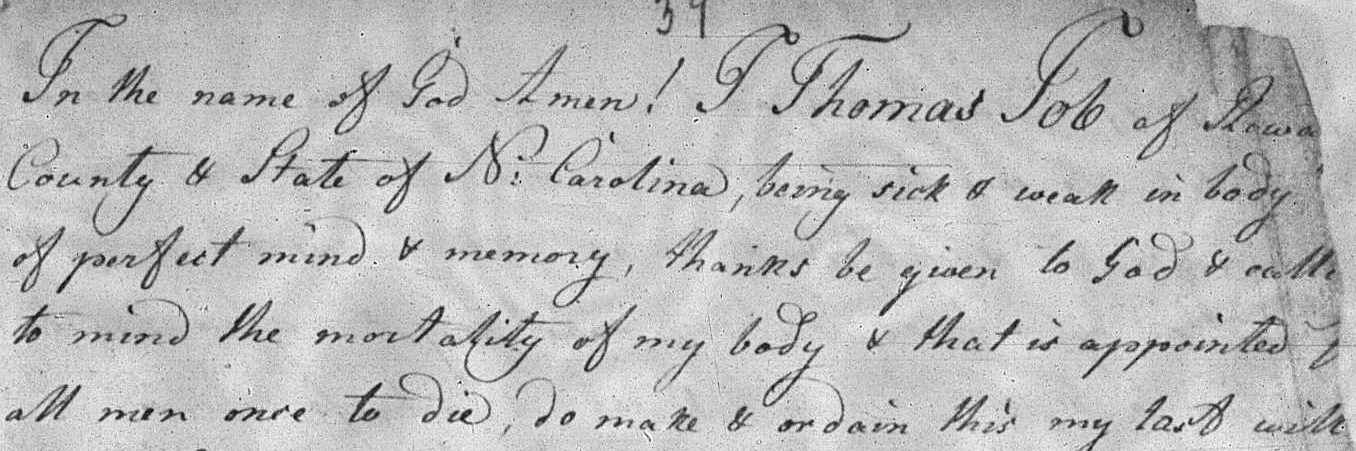 39
In the name of God Amen! I Thomas Job of Rowa
County & State of N: Carolina, being sick & weak in body
of perfect mind & memory, thanks be given to God & calli
to mind the mortality of my body & that is appointed
all men once to die, do make & ordain this my last will